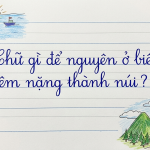 Chữ gì để nguyên ở biê
êm nặng thành núi ?